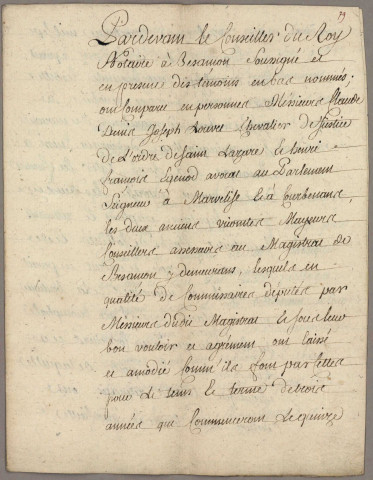 Pardevant le Conseiller du Roy
Notaire à Besancon Soussigné et
en presence des témoins en bas nommés,
ont comparu en personnes Messieurs Claude
Denis Joseph Chevalier de Justice
de L'ordre de Saint Lazare, et
françois avocat au Parlement
Seigneur à Marvelise et à Courbenans,
les deux anciens vicomtes Mayeurs
Conseillers assesseurs au Magistrat de
Besancon y demeurans, lesquels en
qualité de Commissaires députés par
Messieurs dudit Magistrat et sous leur
bon vouloir et agrément, ont laissé
et amodié comm'ils font par cettes
pour le tems et terme de trois
années qui Commenceront le quinze